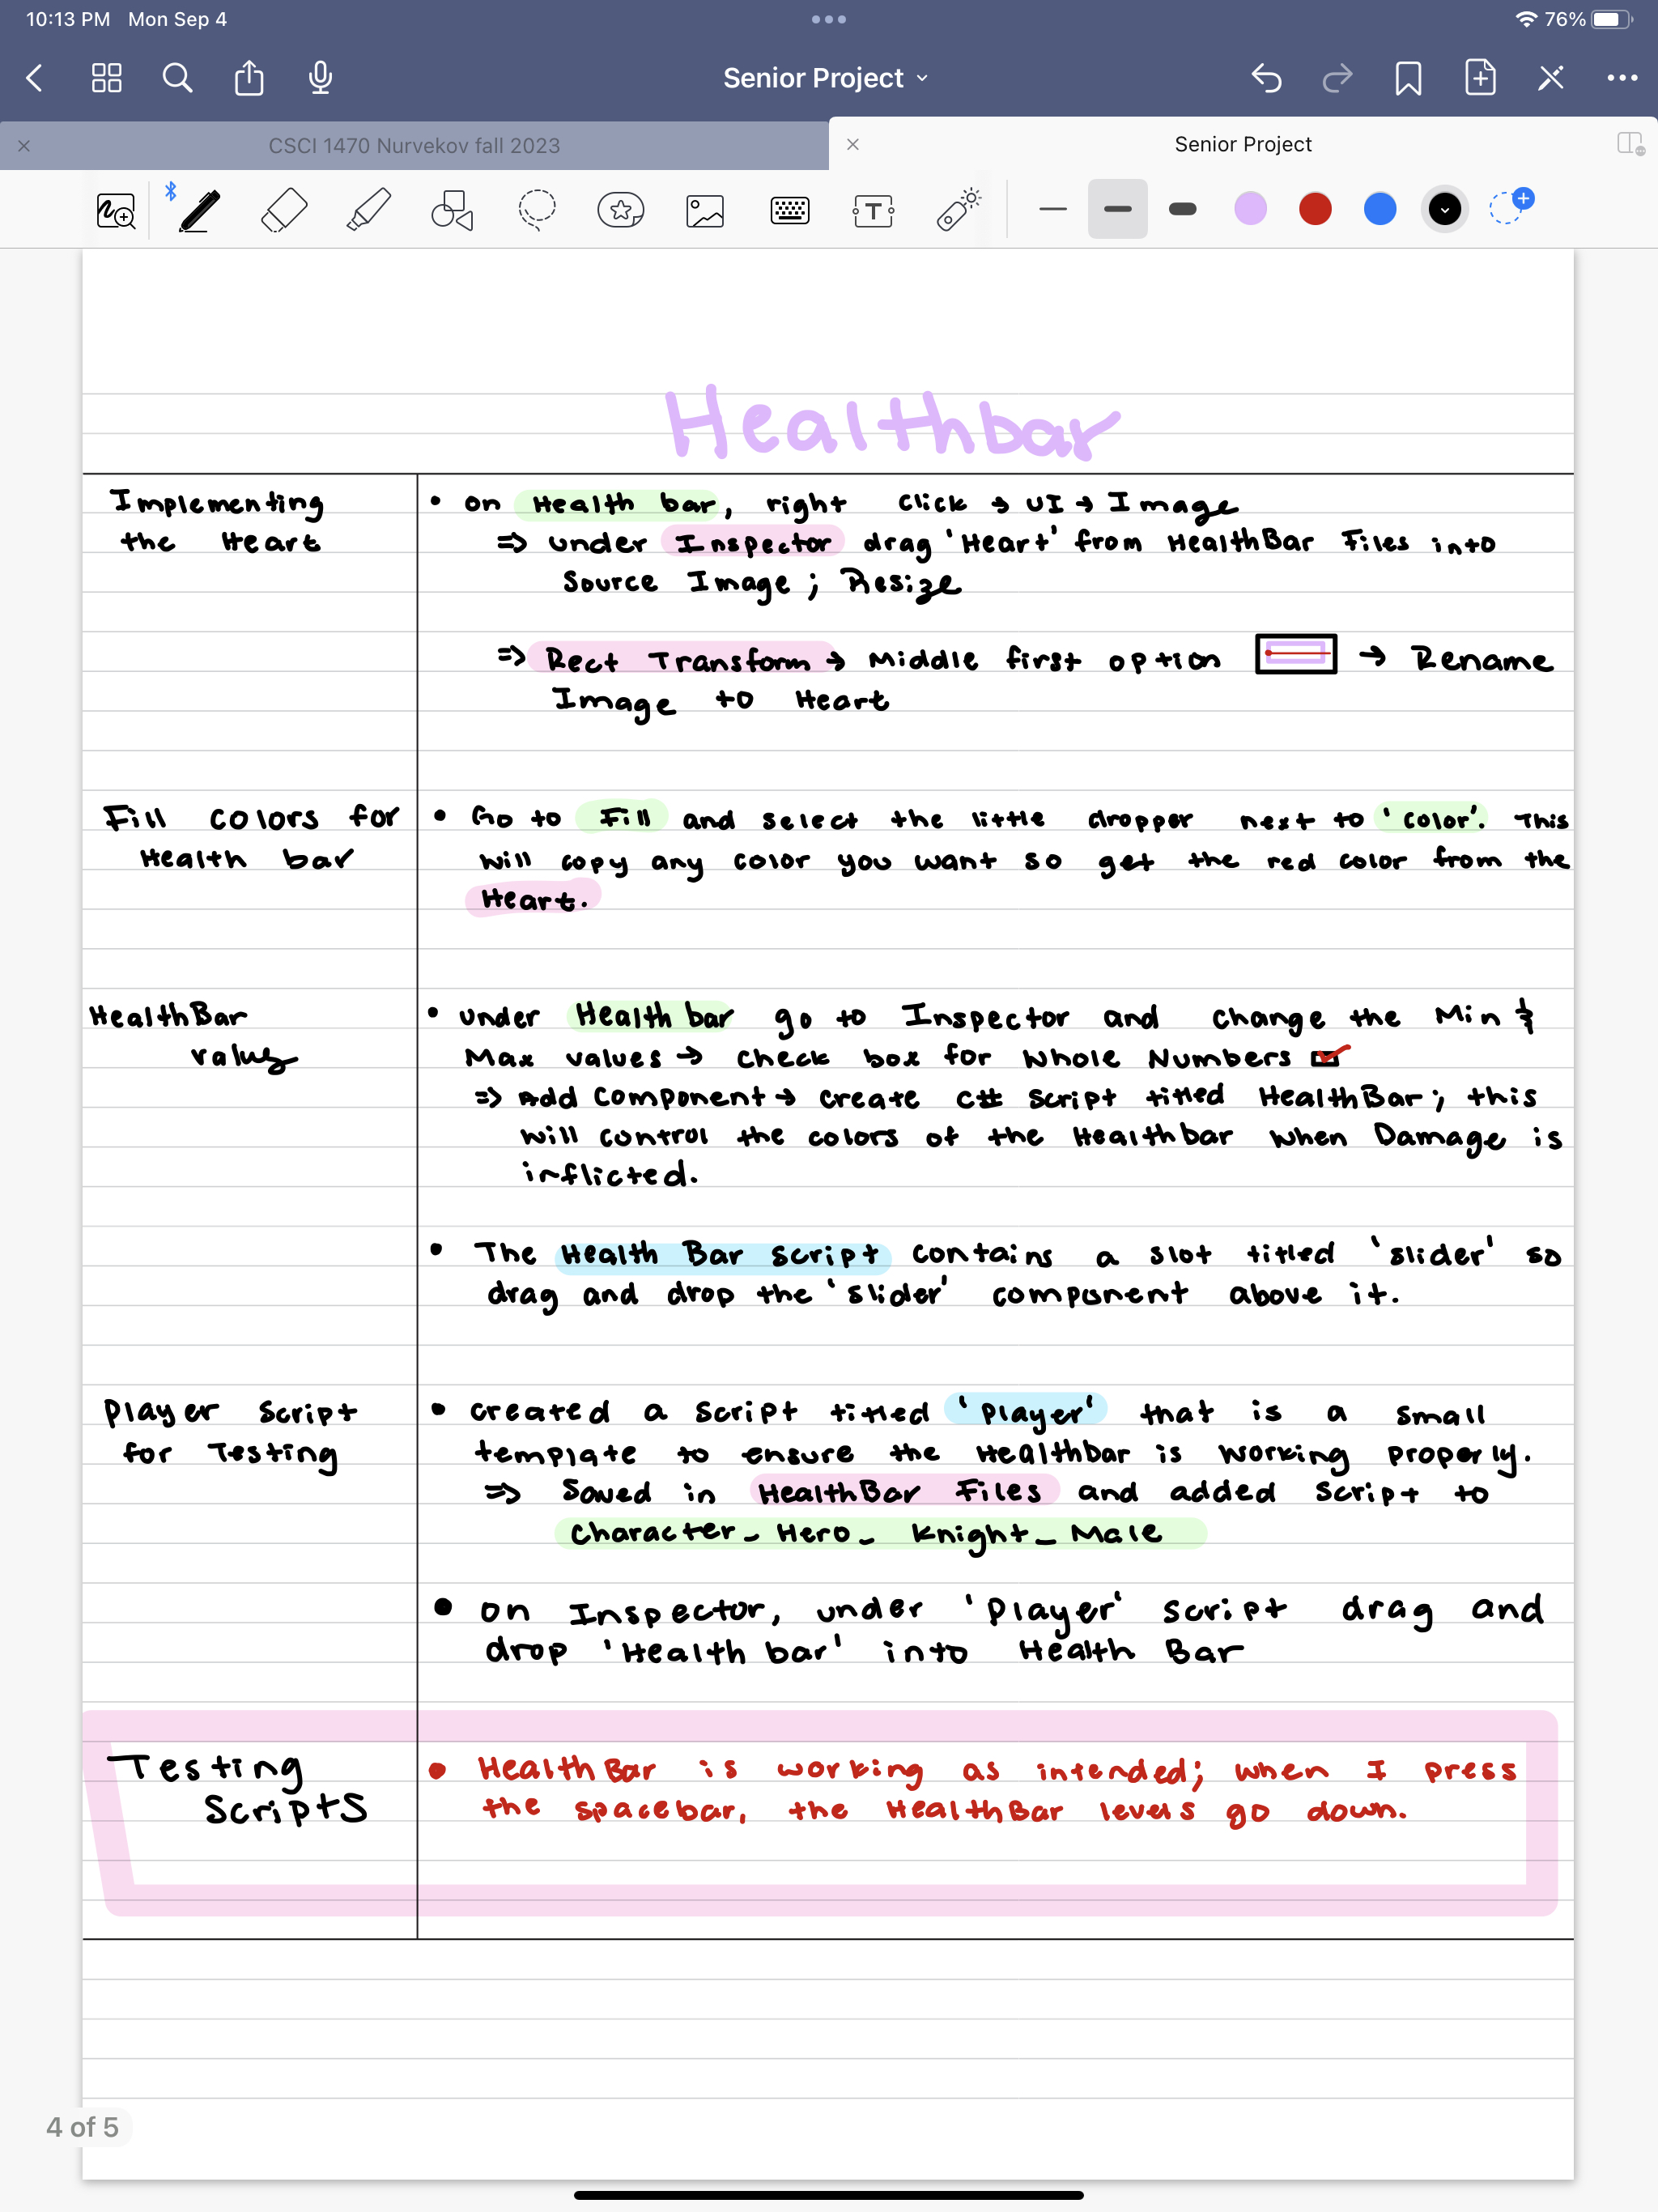 10:13 PM Mon Sep 4
76%
Senior Project
CSCI 1470 Nurvekov fall 2023
Senior Project
Healthbar
Implementing
the Heart
• on Health bar, right click → UI → Image
⇒ under Inspector drag 'Heart' from HealthBar Files into
Source Image ; Resize
⇒ Rect Transform → Middle first option → Rename
Image to Heart
Fill colors for
Health bar
• Go to Fill and select the little dropper next to 'color'. This
will copy any color you want so get the red color from the
Heart.
HealthBar
values
• under Health bar go to Inspector and change the Min &
Max values → check box for Whole Numbers ☑
⇒ Add Component → create C# script titled HealthBar; this
will control the colors of the Healthbar when Damage is
inflicted.
• The Health Bar script contains a slot titled 'slider' so
drag and drop the 'slider' component above it.
Player Script
for Testing
• created a script titled 'Player' that is a small
template to ensure the Healthbar is working properly.
⇒ Saved in HealthBar Files and added script to
Character_Hero_Knight_Male
• on Inspector, under 'Player' script drag and
drop 'Health bar' into Health Bar
Testing
Scripts
• HealthBar is working as intended; when I press
the spacebar, the HealthBar levels go down.
4 of 5